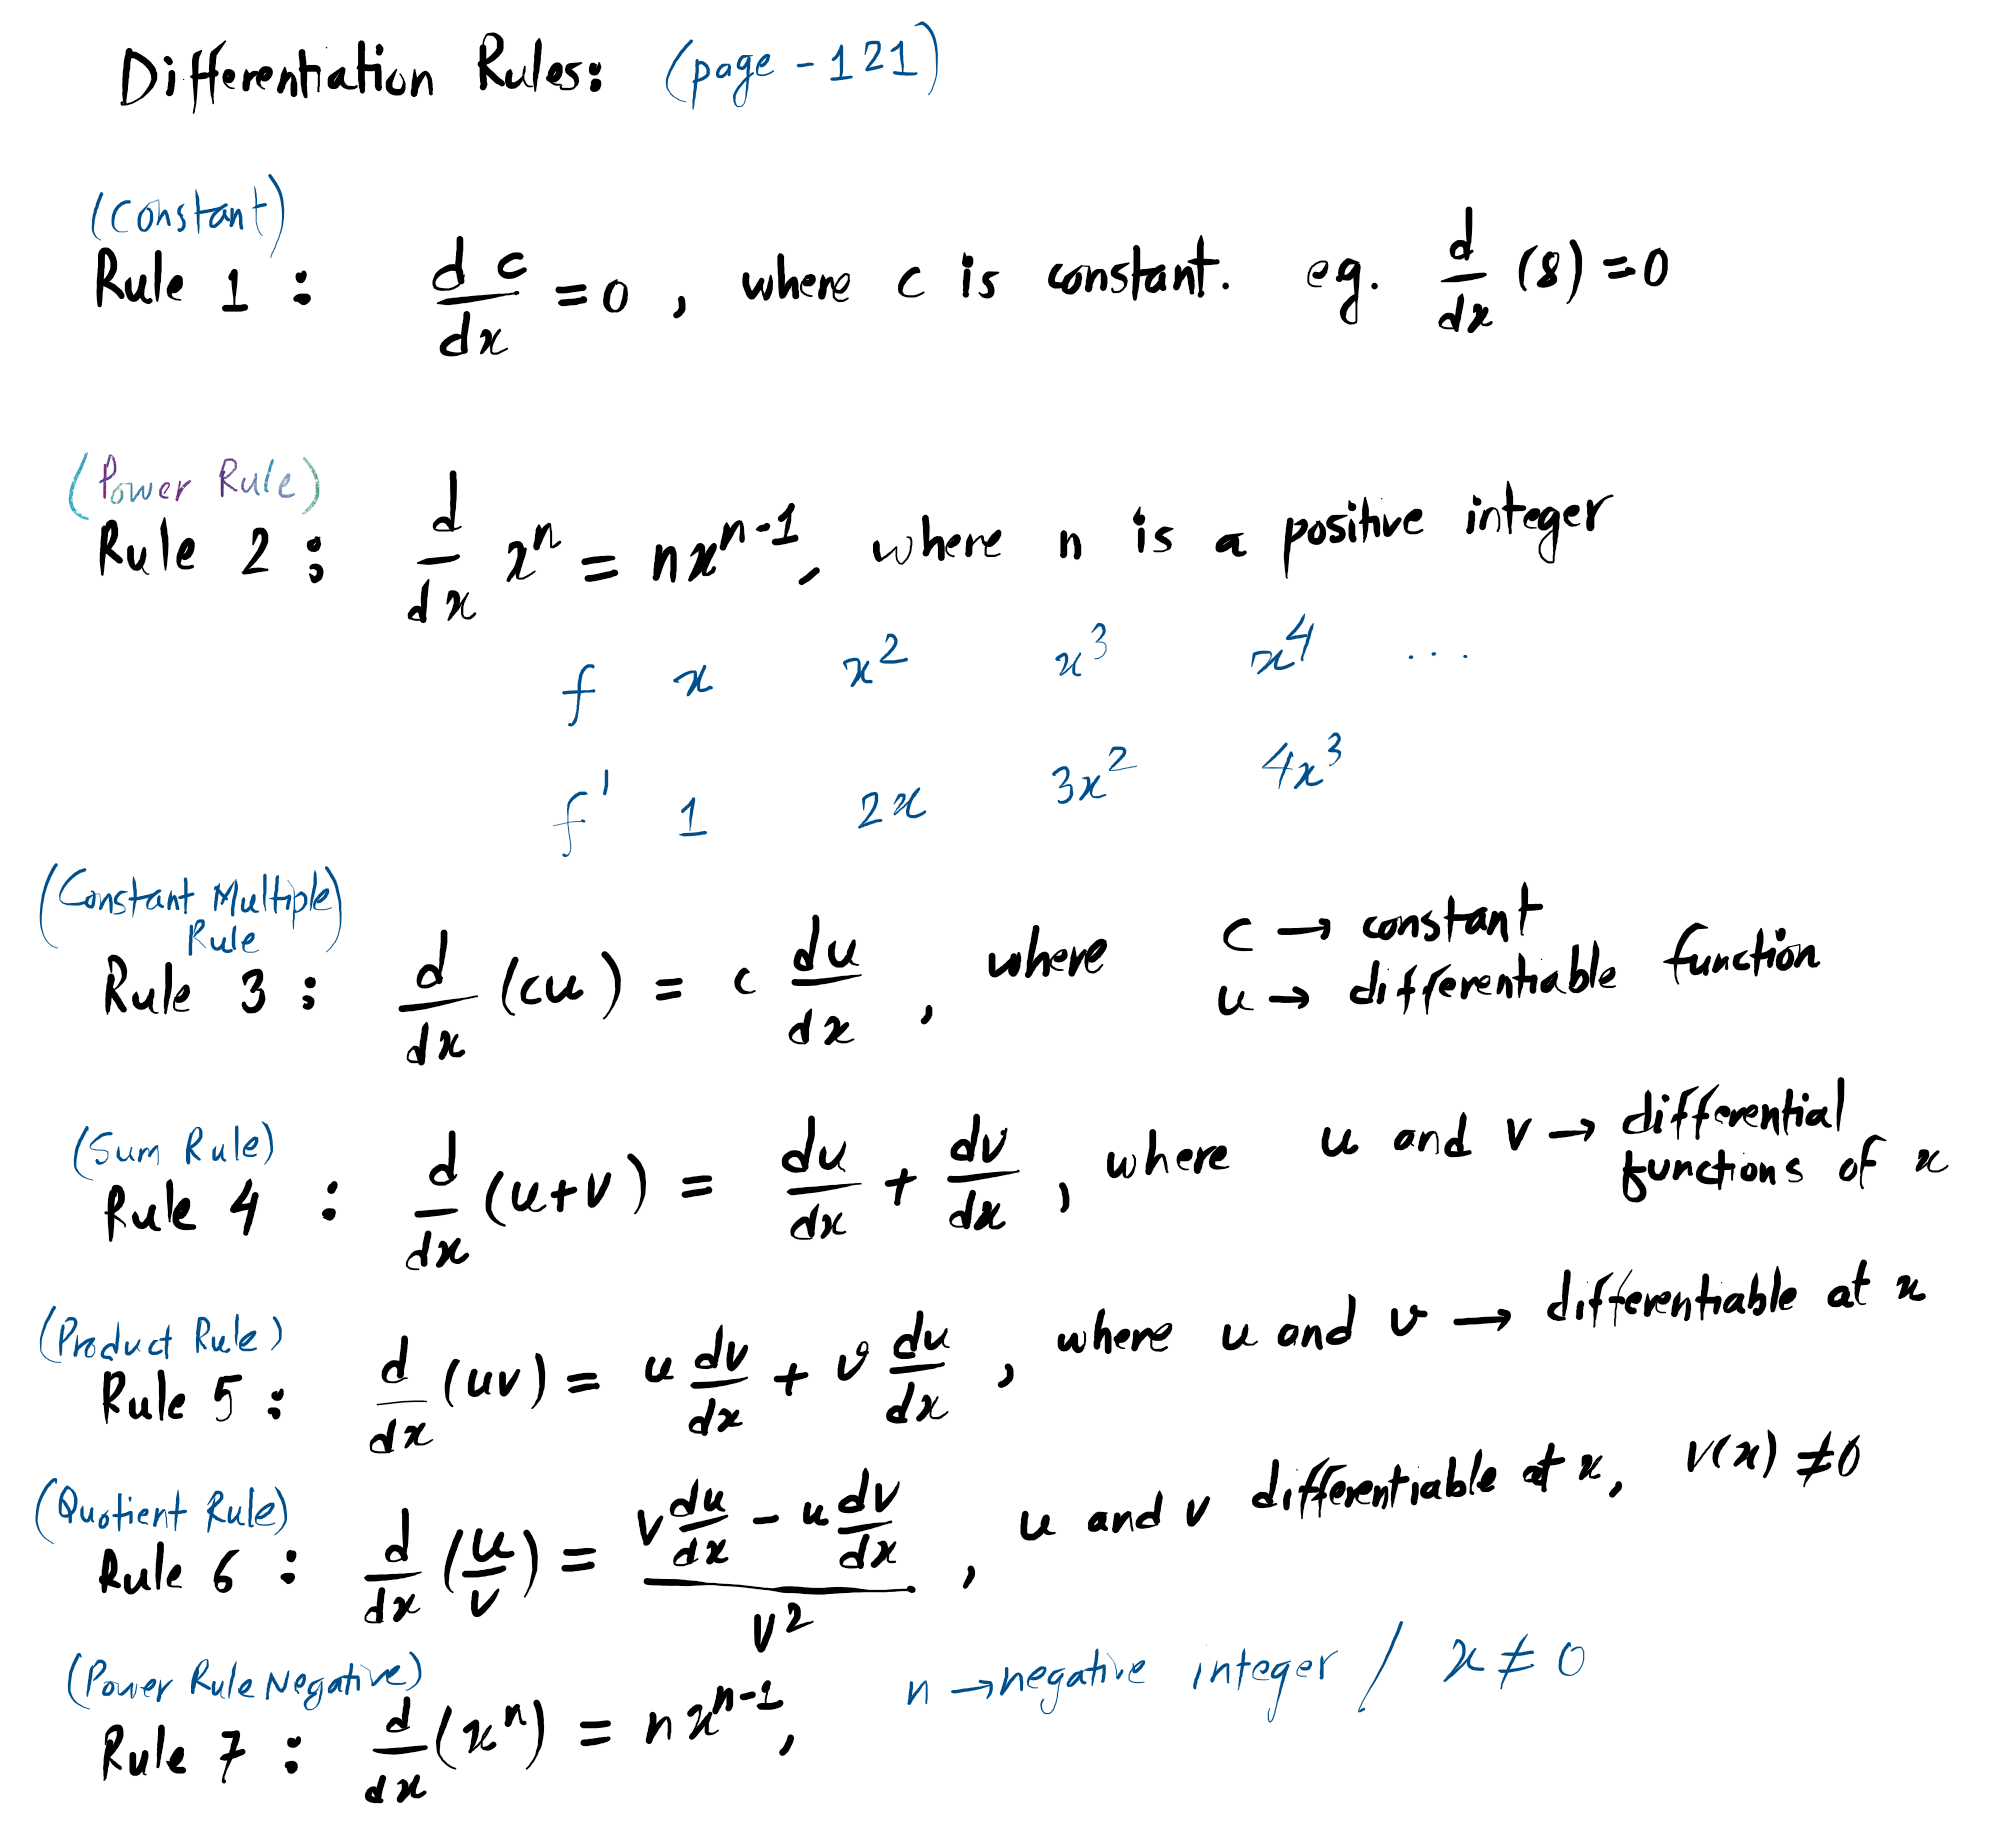 Differentiation Rules: (page - 121)
(Constant)
Rule 1 : dc/dx = 0 , where c is constant. eg. d/dx (8) = 0
(Power Rule)
Rule 2 : d/dx xⁿ = nxⁿ⁻¹, where n is a positive integer
f x x² x³ x⁴ ...
f' 1 2x 3x² 4x³
(Constant Multiple
Rule)
Rule 3 : d/dx (cu) = c du/dx , where c → constant
u → differentiable function
(Sum Rule)
Rule 4 : d/dx (u+v) = du/dx + dv/dx , where u and v → differential
functions of x
(Product Rule)
Rule 5 : d/dx (uv) = u dv/dx + v du/dx , where u and v → differentiable at x
(Quotient Rule)
Rule 6 : d/dx (u/v) = (v du/dx - u dv/dx)/v² , u and v differentiable at x, v(x) ≠ 0
(Power Rule Negative)
Rule 7 : d/dx (xⁿ) = nxⁿ⁻¹, n → negative integer / x ≠ 0